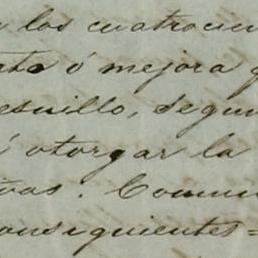 los cuatrocien
ó mejora
esuillo, segun
otorgar la
Comuni
consiguientes=